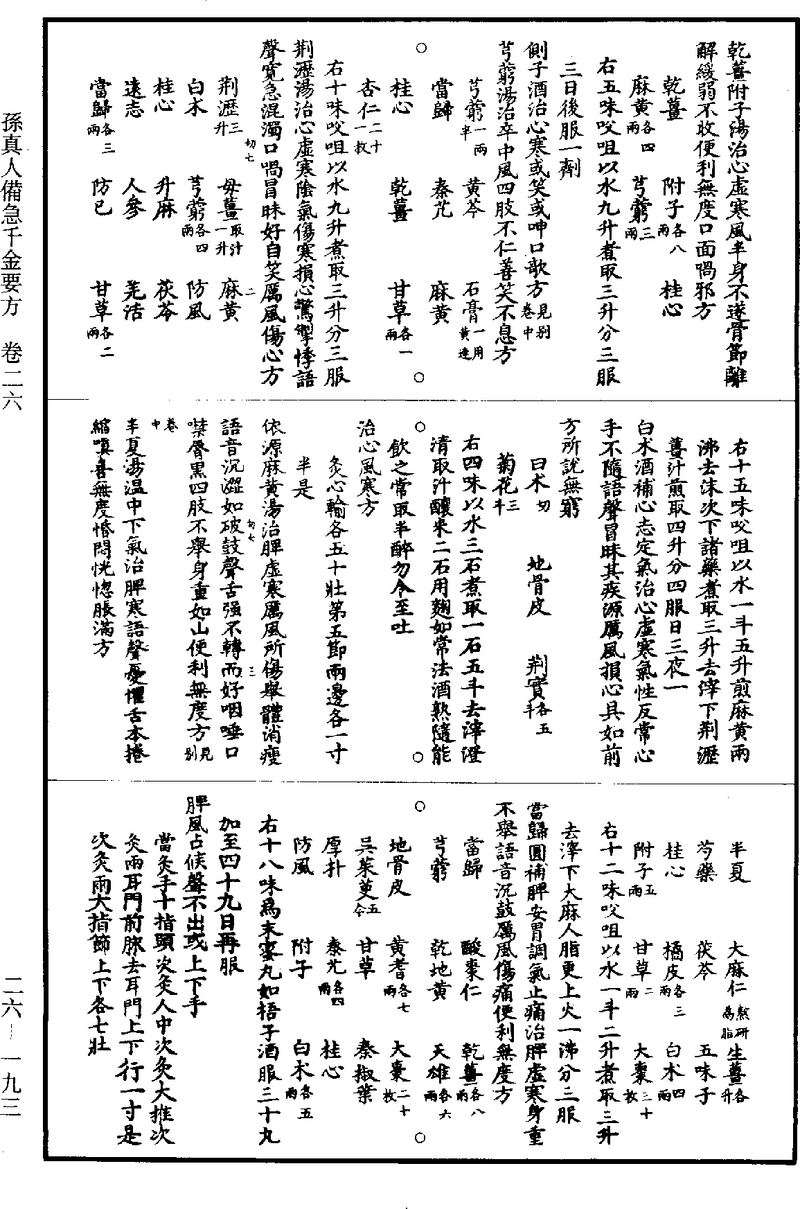 乾薑附子湯治心虛寒風半身不遂骨節離
解緩弱不收便利無度口面喎邪方
乾薑 附子各八兩 桂心
麻黃各四兩 芎藭三兩
右五味㕮咀以水九升煮取三升分三服
三日後服一劑
側子酒治心寒或笑或呻口歌方見別卷中
芎藭湯治卒中風四肢不仁善笑不息方
芎藭一兩半 黃芩 石膏一用黃連
當歸 秦艽 麻黃
桂心 乾薑 甘草各一兩
杏仁二十一枚
右十味㕮咀以水九升煮取三升分三服
荆瀝湯治心虛寒陰氣傷寒損心驚掣悸語
聲寬急混濁口喎冒昧好自笑厲風傷心方
荆瀝三升 母薑切七取汁一升 麻黃
白朮 芎藭各四兩 防風二
桂心 升麻 茯苓
遠志 人參 羌活
當歸各三兩 防已 甘草各二兩
右十五味㕮咀以水一斗五升煎麻黃兩
沸去沫次下諸藥煮取三升去滓下荆瀝
薑汁煎取四升分四服日三夜一
白朮酒補心志定氣治心虛寒氣性反常心
手不隨語聲冒昧其疾源厲風損心具如前
方所說無窮
白朮切 地骨皮 荆實各五斗
菊花三斗
右四味以水三石煮取一石五斗去滓澄
清取汁釀米二石用麴如常法酒熟隨能
飲之常取半醉勿令至吐
治心風寒方
灸心輸各五十壯第五節兩邊各一寸
半是
依源麻黃湯治脾虛寒厲風所傷舉體消瘦
語音沉澀如破鼓聲舌强不轉而好咽唾口
噤脣黑四肢不舉身重如山便利無度方見別
卷中
半夏湯溫中下氣治脾寒語聲憂懼舌本捲
縮嗔喜無度惛悶恍惚脹滿方
半夏 大麻仁熬研爲脂 生薑各升
芍藥 茯苓 五味子
桂心 橘皮各三兩 白朮四兩
附子五兩 甘草二兩 大棗三十枚
右十二味㕮咀以水一斗二升煮取三升
去滓下大麻人脂更上火一沸分三服
當歸圓補脾安胃調氣止痛治脾虛寒身重
不舉語音沉鼓厲風傷痛便利無度方
當歸 酸棗仁 乾薑各八兩
芎藭 乾地黃 天雄各六兩
地骨皮 黃耆各七兩 大棗二十枚
吳茱萸五合 甘草 秦椒葉
厚朴 秦艽各四兩 桂心
防風 附子 白朮各五兩
右十八味爲末蜜丸如梧子酒服三十丸
加至四十九日再服
脾風占候聲不出或上下手
當灸手十指頭次灸人中次灸大推次
灸兩耳門前脉去耳門上下行一寸是
次灸兩大指節上下各七壯
孫真人備急千金要方 卷二六
二六—一九三